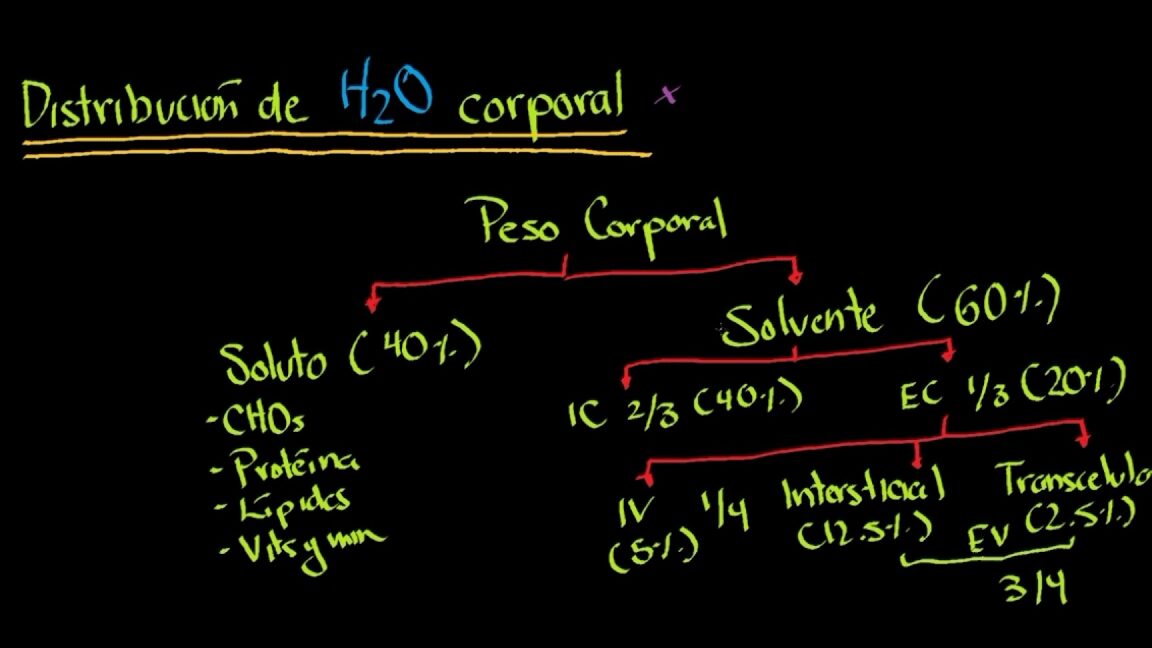 Distribución de H2O corporal x
Peso Corporal
Soluto (40%)
- CHOs
- Proteína
- Lípidos
- Vits y min
Solvente (60%)
IC 2/3 (40%)
EC 1/3 (20%)
IV 1/4
(5%)
Intersticial
(12.5%)
Transcelula
(2.5%)
EV
3/4